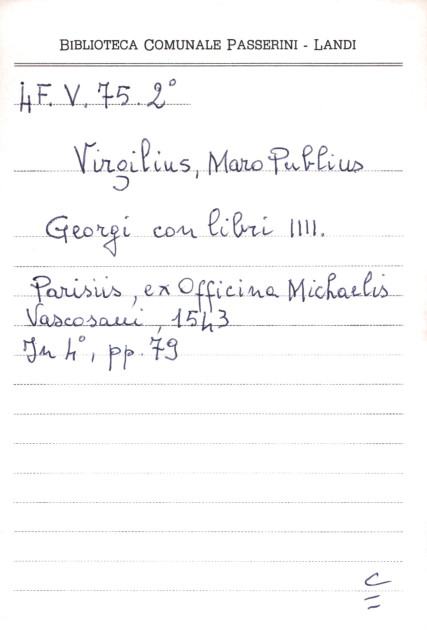 BIBLIOTECA COMUNALE PASSERINI - LANDI
4F. V. 75. 2°
Virgilius, Maro Publius
Georgi con libri IIII.
Parisiis, ex Officina Michaelis
Vascosani, 1543
In 4°, pp. 79
C